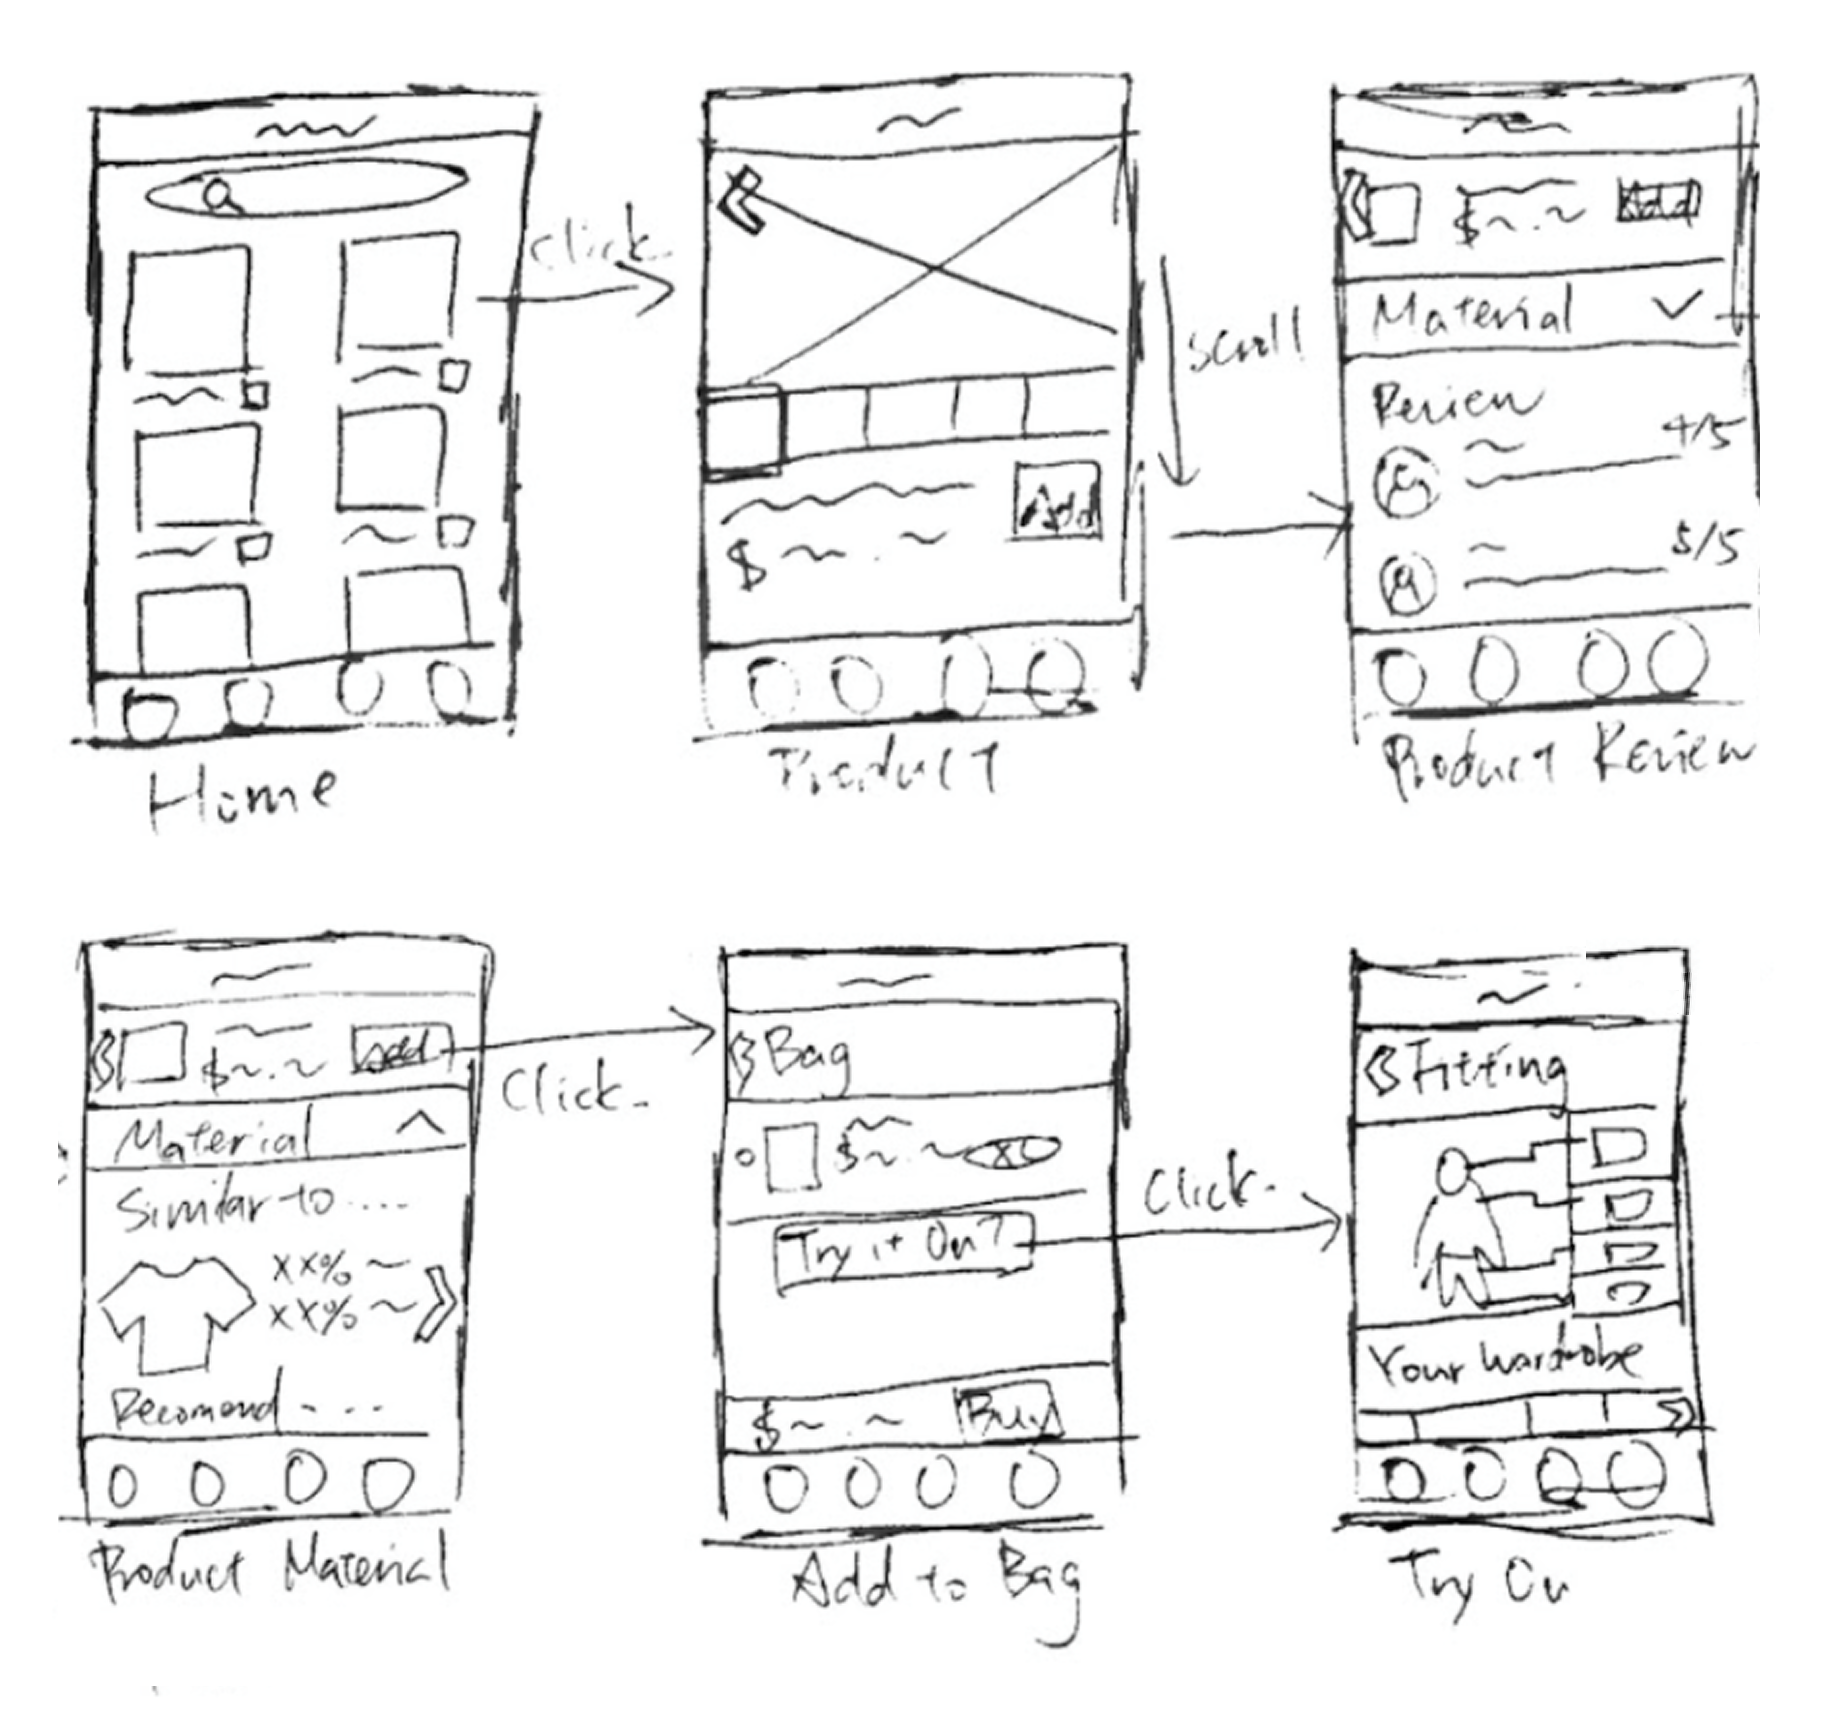 Click.
Home
Add
$
scroll
Product
$ Add
Material
Review
4/5
5/5
Product Review
$ Add
Material
Similar to ....
xx%
xx%
Recomend - - -
Product Material
Click.
Bag
$
Try it On?
$ Buy
Add to Bag
Click.
Fitting
Your wardrobe
Try On